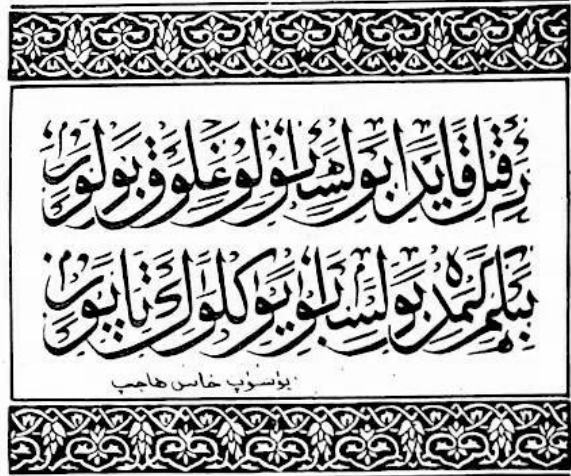 ئەقىل قايدا بولسا ئۇلۇغلۇق بولۇر
بىلىم كىمدە بولسا بۈيۈكلۈك تاپۇر
يۈسۈپ خاس ھاجىپ